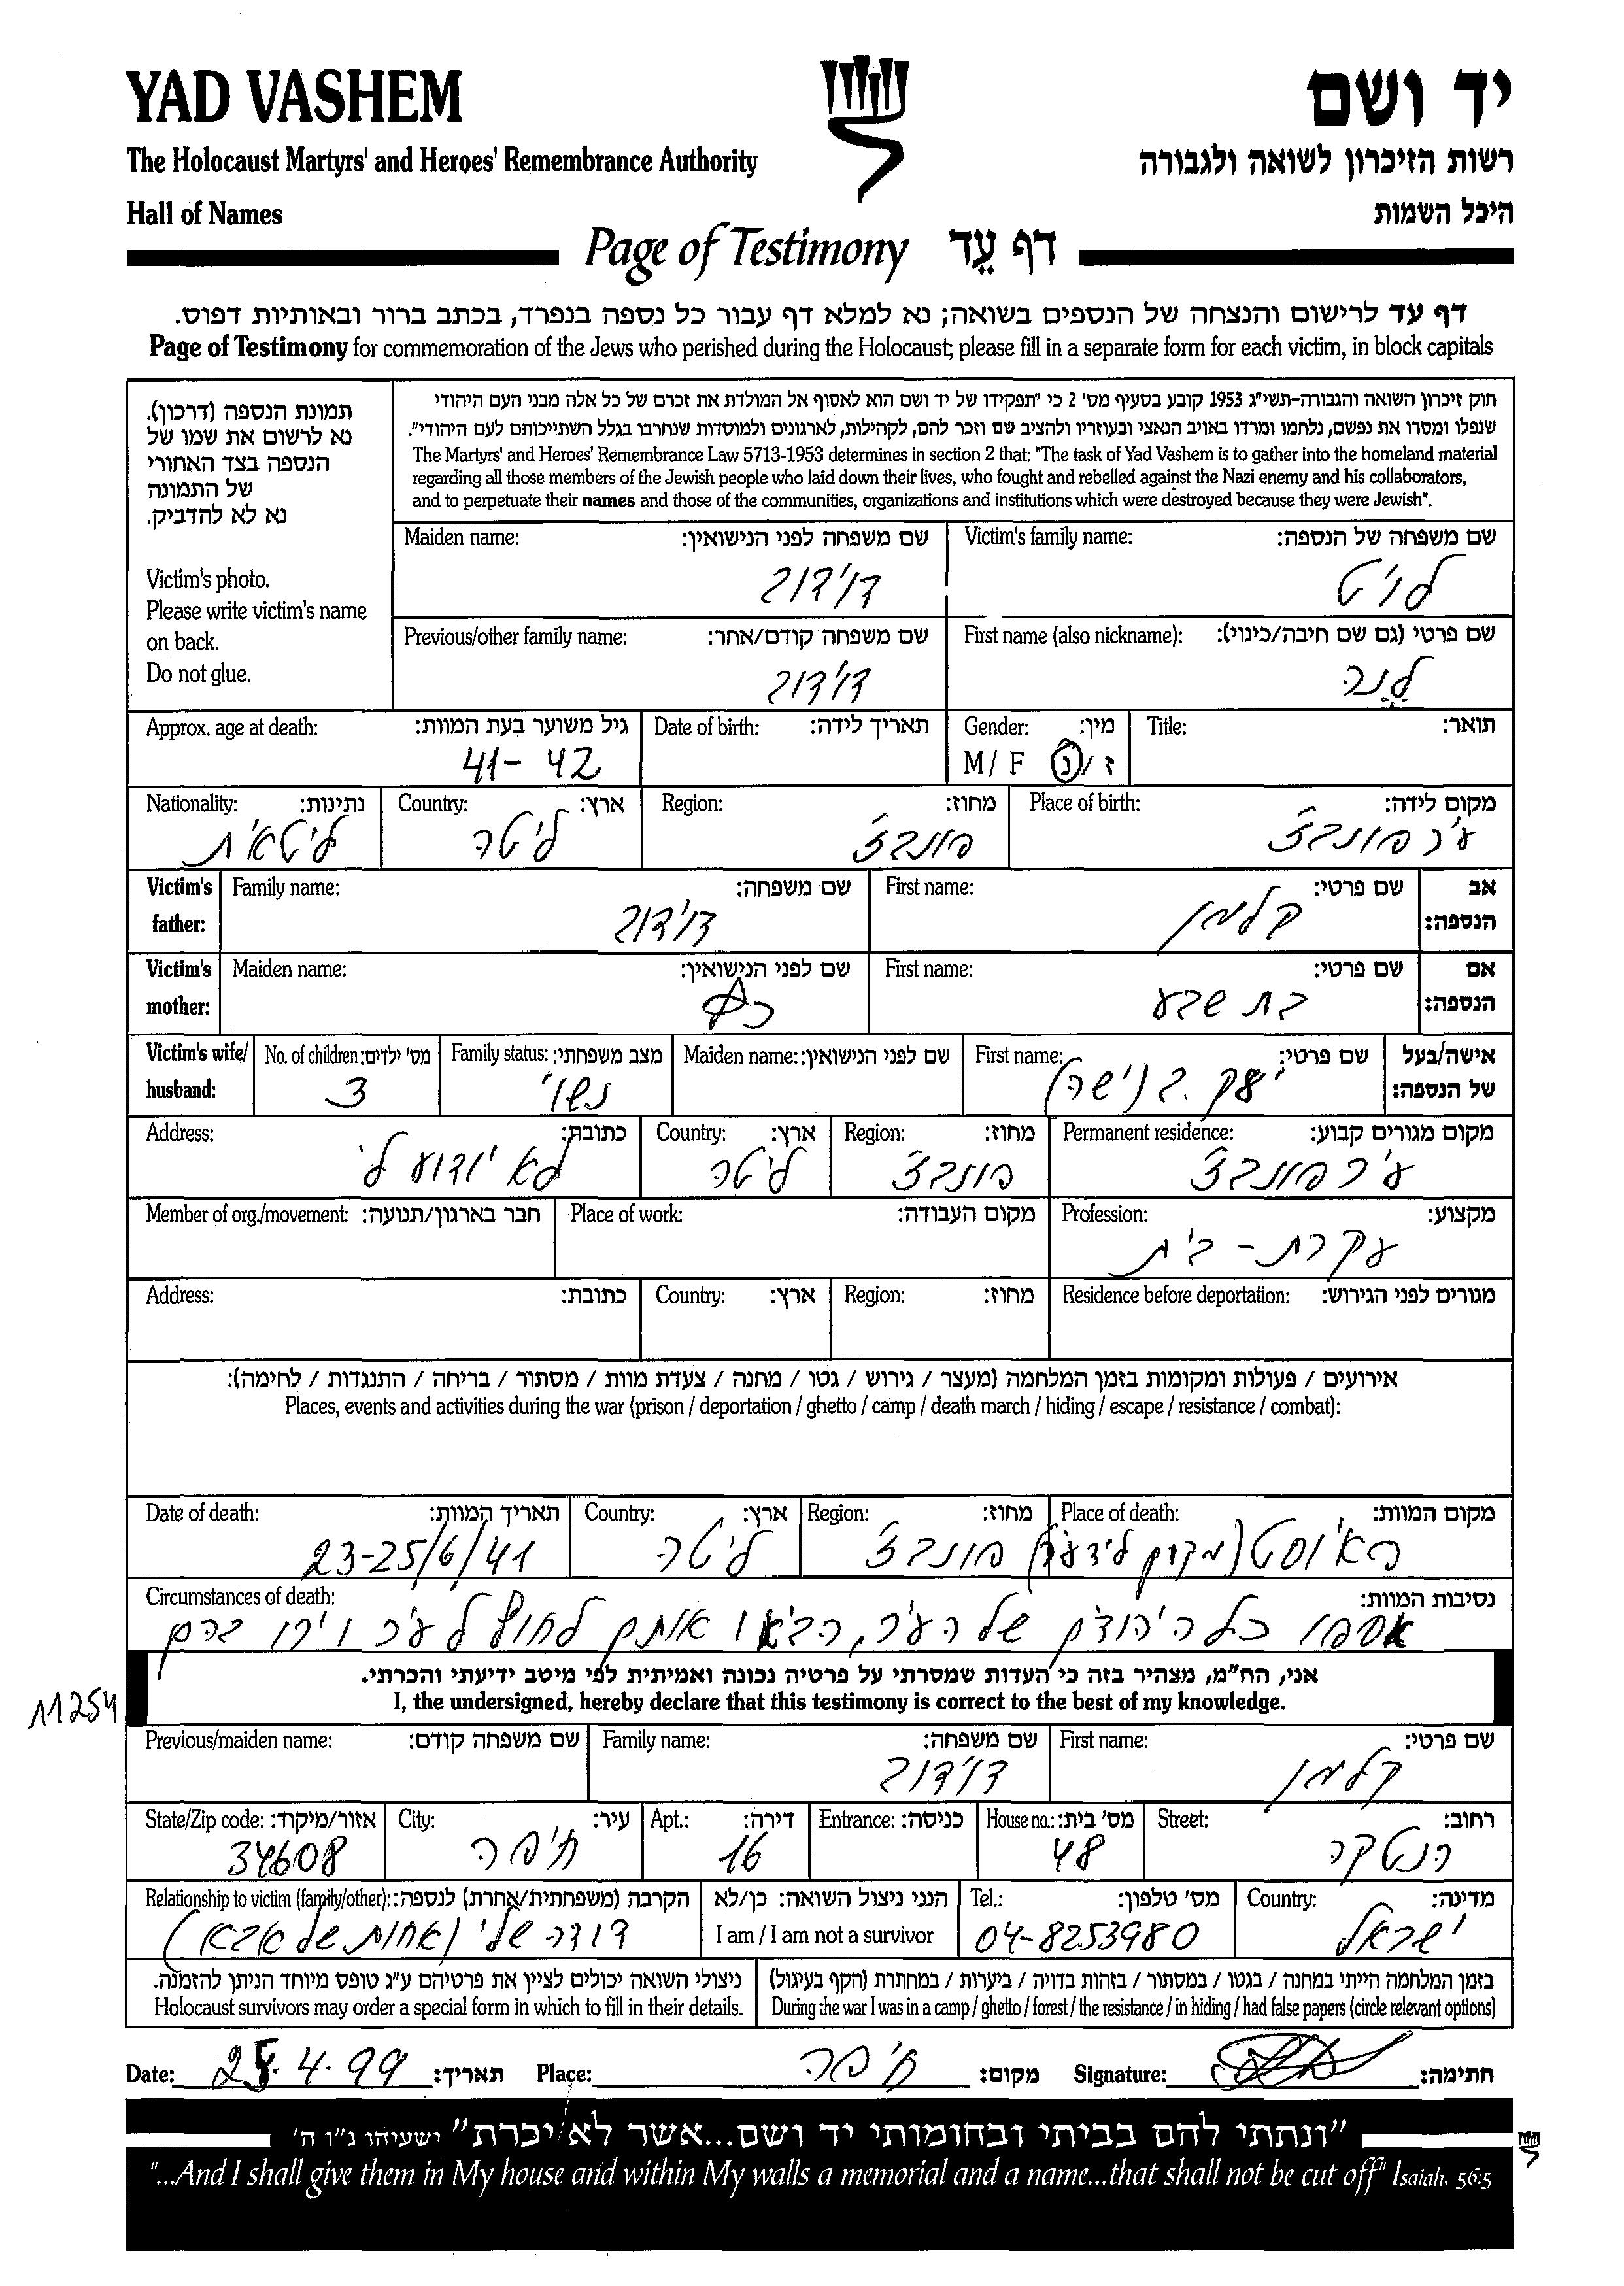 YAD VASHEM
יד ושם
The Holocaust Martyrs' and Heroes' Remembrance Authority
רשות הזיכרון לשואה ולגבורה
Hall of Names
היכל השמות
Page of Testimony דף עֵד
דף עד לרישום והנצחה של הנספים בשואה; נא למלא דף עבור כל נספה בנפרד, בכתב ברור ובאותיות דפוס.
Page of Testimony for commemoration of the Jews who perished during the Holocaust; please fill in a separate form for each victim, in block capitals
תמונת הנספה (דרכון).
נא לרשום את שמו של
הנספה בצד האחורי
של התמונה
נא לא להדביק.
Victim's photo.
Please write victim's name
on back.
Do not glue.
חוק זיכרון השואה והגבורה-תשי"ג 1953 קובע בסעיף מס' 2 כי "תפקידו של יד ושם הוא לאסוף אל המולדת את זכרם של כל אלה מבני העם היהודי
שנפלו ומסרו את נפשם, נלחמו ומרדו באויב הנאצי ובעוזריו ולהציב שם וזכר להם, לקהילות, לארגונים ולמוסדות שנחרבו בגלל השתייכותם לעם היהודי".
The Martyrs' and Heroes' Remembrance Law 5713-1953 determines in section 2 that: "The task of Yad Vashem is to gather into the homeland material
regarding all those members of the Jewish people who laid down their lives, who fought and rebelled against the Nazi enemy and his collaborators,
and to perpetuate their names and those of the communities, organizations and institutions which were destroyed because they were Jewish".
Victim's family name: שם משפחה של הנספה:
לויט
Maiden name: שם משפחה לפני הנישואין:
דוידוב
First name (also nickname): שם פרטי (גם שם חיבה/כינוי):
לנה
Previous/other family name: שם משפחה קודם/אחר:
דוידוב
Title: תואר:
Gender: מין:
M / F ז / נ
Date of birth: תאריך לידה:
Approx. age at death: גיל משוער בעת המוות:
41-42
Place of birth: מקום לידה:
עיר פונבז'
Region: מחוז:
פונבז'
Country: ארץ:
ליטה
Nationality: נתינות:
ליטאית
Victim's father: אב הנספה:
First name: שם פרטי:
קלמן
Family name: שם משפחה:
דוידוב
Victim's mother: אם הנספה:
First name: שם פרטי:
בת שבע
Maiden name: שם לפני הנישואין:
Victim's wife/ husband: אישה/בעל של הנספה:
First name: שם פרטי:
Maiden name: שם לפני הנישואין:
Family status: מצב משפחתי:
נשוי
No. of children: מס' ילדים:
3
Permanent residence: מקום מגורים קבוע:
עיר פונבז'
Region: מחוז:
פונבז'
Country: ארץ:
ליטה
Address: כתובת:
לא ידוע לי
Profession: מקצוע:
עקרת-בית
Place of work: מקום העבודה:
Member of org./movement: חבר בארגון/תנועה:
Residence before deportation: מגורים לפני הגירוש:
Region: מחוז:
Country: ארץ:
Address: כתובת:
אירועים / פעולות ומקומות בזמן המלחמה (מעצר / גירוש / גטו / מחנה / צעדת מוות / מסתור / בריחה / התנגדות / לחימה):
Places, events and activities during the war (prison / deportation / ghetto / camp / death march / hiding / escape / resistance / combat):
Place of death: מקום המוות:
Region: מחוז:
פונבז'
Country: ארץ:
ליטה
Date of death: תאריך המוות:
23-25/6/41
Circumstances of death: נסיבות המוות:
אספו כל היהודים של העיר, הביאו אותם לחוץ לעיר וירו בהם
אני, הח"מ, מצהיר בזה כי העדות שמסרתי על פרטיה נכונה ואמיתית לפי מיטב ידיעתי והכרתי.
I, the undersigned, hereby declare that this testimony is correct to the best of my knowledge.
11254
First name: שם פרטי:
קלמן
Family name: שם משפחה:
דוידוב
Previous/maiden name: שם משפחה קודם:
Street: רחוב:
הנטקה
House no.: מס' בית:
48
Entrance: כניסה:
Apt.: דירה:
16
City: עיר:
חיפה
State/Zip code: אזור/מיקוד:
34608
Country: מדינה:
ישראל
Tel.: מס' טלפון:
04-8253980
הנני ניצול השואה: כן/לא
I am / I am not a survivor
Relationship to victim (family/other): הקרבה (משפחתית/אחרת) לנספה:
דודה שלי (אחות של אבא)
בזמן המלחמה הייתי במחנה / בגטו / במסתור / בזהות בדויה / ביערות / במחתרת (הקף בעיגול)
During the war I was in a camp / ghetto / forest / the resistance / in hiding / had false papers (circle relevant options)
ניצולי השואה יכולים לציין את פרטיהם ע"ג טופס מיוחד הניתן להזמנה.
Holocaust survivors may order a special form in which to fill in their details.
Date: 25.4.99 תאריך: Place: חיפה מקום: Signature: חתימה:
"ונתתי להם בביתי ובחומותי יד ושם...אשר לא יכרת" ישעיהו נ"ו ה'
"...And I shall give them in My house and within My walls a memorial and a name...that shall not be cut off" Isaiah. 56:5